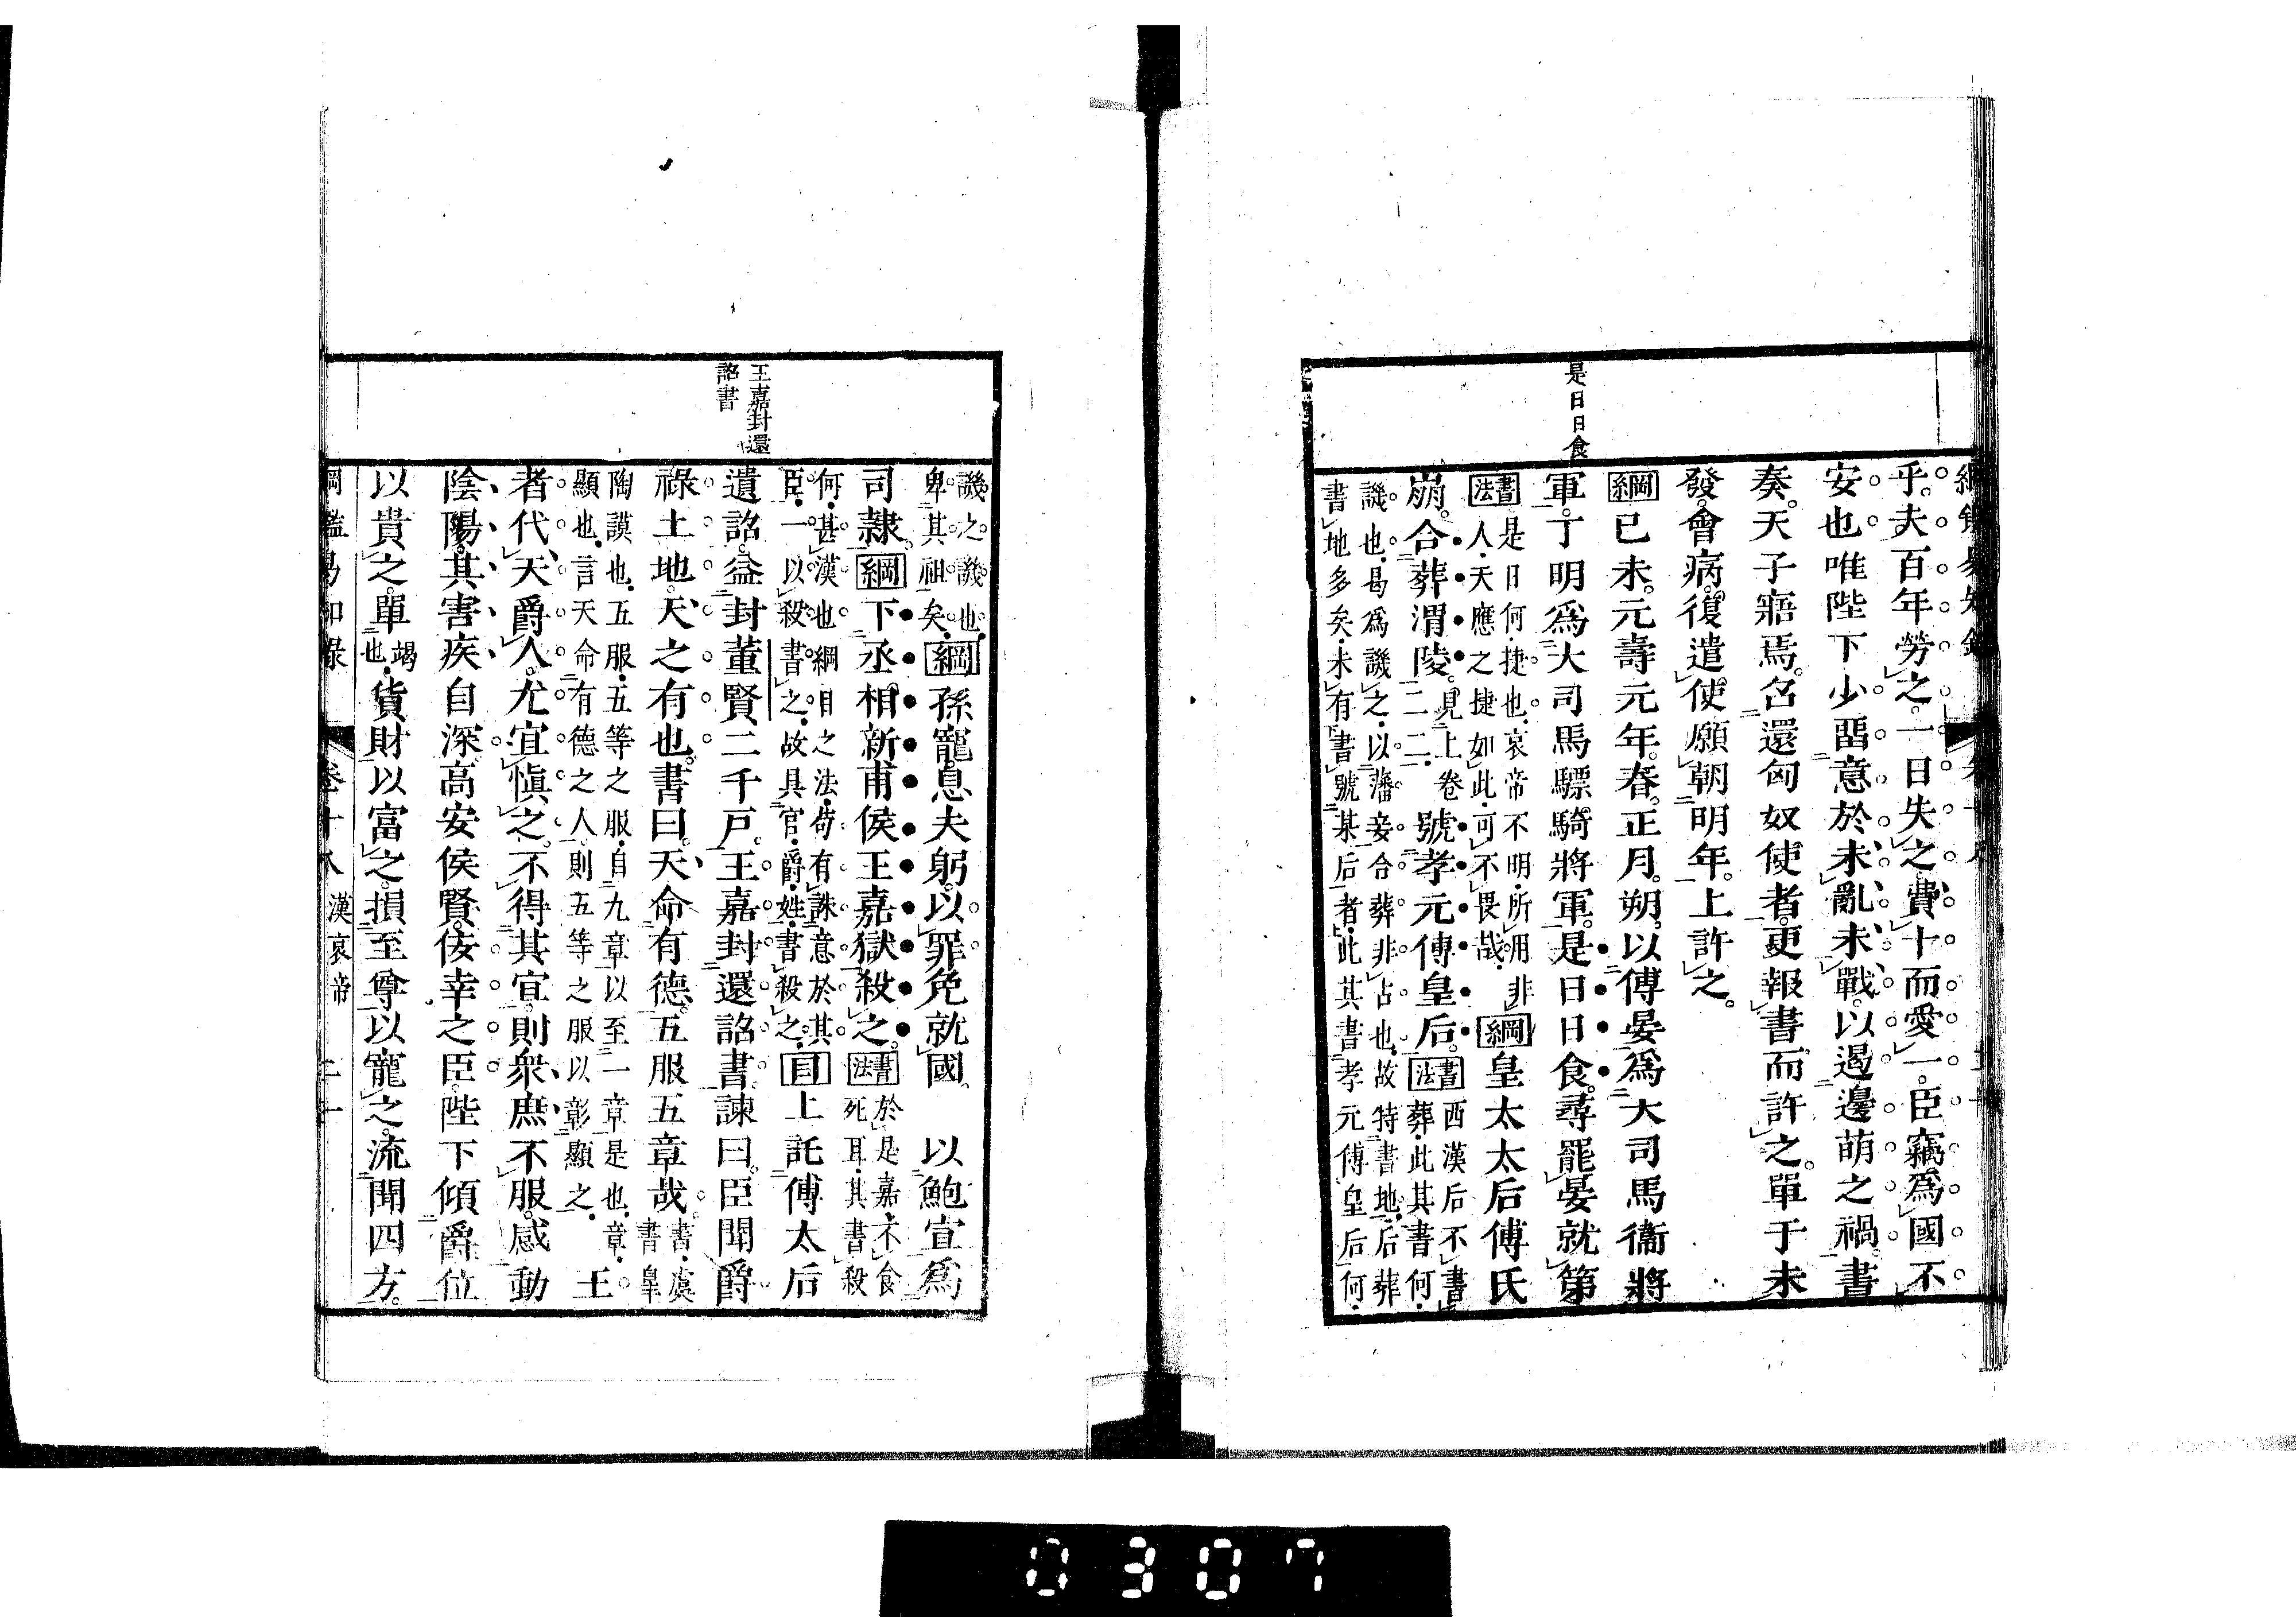 是日日食
乎夫百年勞之一日失之費十而愛一臣竊爲國不
安也唯陛下少畱意於未亂未戰以遏邊萌之禍書
奏天子寤焉召還匈奴使者更報書而許之單于未
發會病復遣使願朝明年上許之
綱己未元壽元年春正月朔以傅晏爲大司馬衞將
軍丁明爲大司馬驃騎將軍是日日食尋罷晏就第
書法是日何捷也哀帝不明所用非
人天應之捷如此可不畏哉綱皇太太后傅氏
崩合葬渭陵見上卷二二號孝元傅皇后書法西漢后不書
葬此其書何
譏也曷爲譏之以藩妾合葬非占也故特書地后葬
書地多矣未有書號某后者此其書孝元傅皇后何
王嘉封還
詔書
譏之譏也
卑其祖矣綱孫寵息夫躬以罪免就國　以鮑宣爲
司隸綱下丞相新甫侯王嘉獄殺之書法於是嘉不食
死耳其書殺
何甚漢也綱目之法苟有誅意於其
臣一以殺書之故具官爵姓書殺之目上託傅太后
遺詔益封董賢二千戸王嘉封還詔書諫曰臣聞爵
祿土地天之有也書曰天命有德五服五章哉書虞
書皐
陶謨也五服五等之服自九章以至一章是也章
顯也言天命有德之人則五等之服以彰顯之王
者代天爵人尤宜愼之不得其宜則衆庶不服感動
陰陽其害疾自深高安侯賢佞幸之臣陛下傾爵位
以貴之單竭
也貨財以富之損至尊以寵之流聞四方
卷十八　漢哀帝
0307